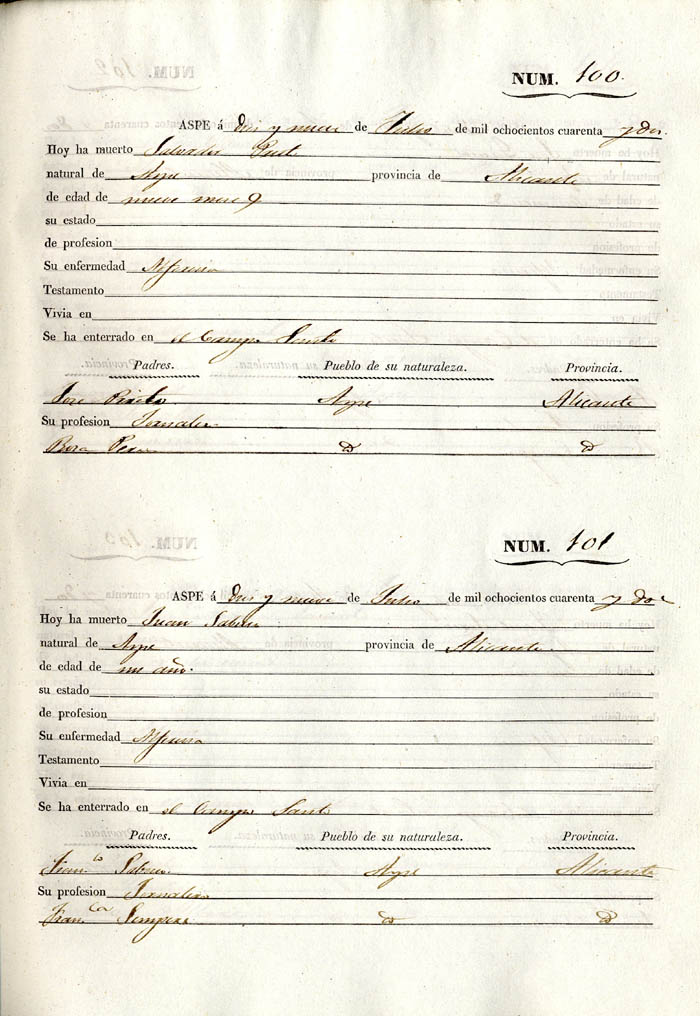 NUM. 100.
ASPE á diez y nueve de Julio de mil ochocientos cuarenta y dos
Hoy ha muerto Salvador
natural de Aspe provincia de Alicante
de edad de nueve meses
su estado
de profesion
Su enfermedad Alferecia
Testamento
Vivia en
Se ha enterrado en el Campo Santo
Padres. Pueblo de su naturaleza. Provincia.
Jose Aspe Alicante
Su profesion Jornalero
Rosa
NUM. 101
ASPE á diez y nueve de Julio de mil ochocientos cuarenta y dos
Hoy ha muerto Juan
natural de Aspe provincia de Alicante
de edad de un año.
su estado
de profesion
Su enfermedad Alferecia
Testamento
Vivia en
Se ha enterrado en el Campo Santo
Padres. Pueblo de su naturaleza. Provincia.
Franco Aspe Alicante
Su profesion Jornalero
Franca Sempere